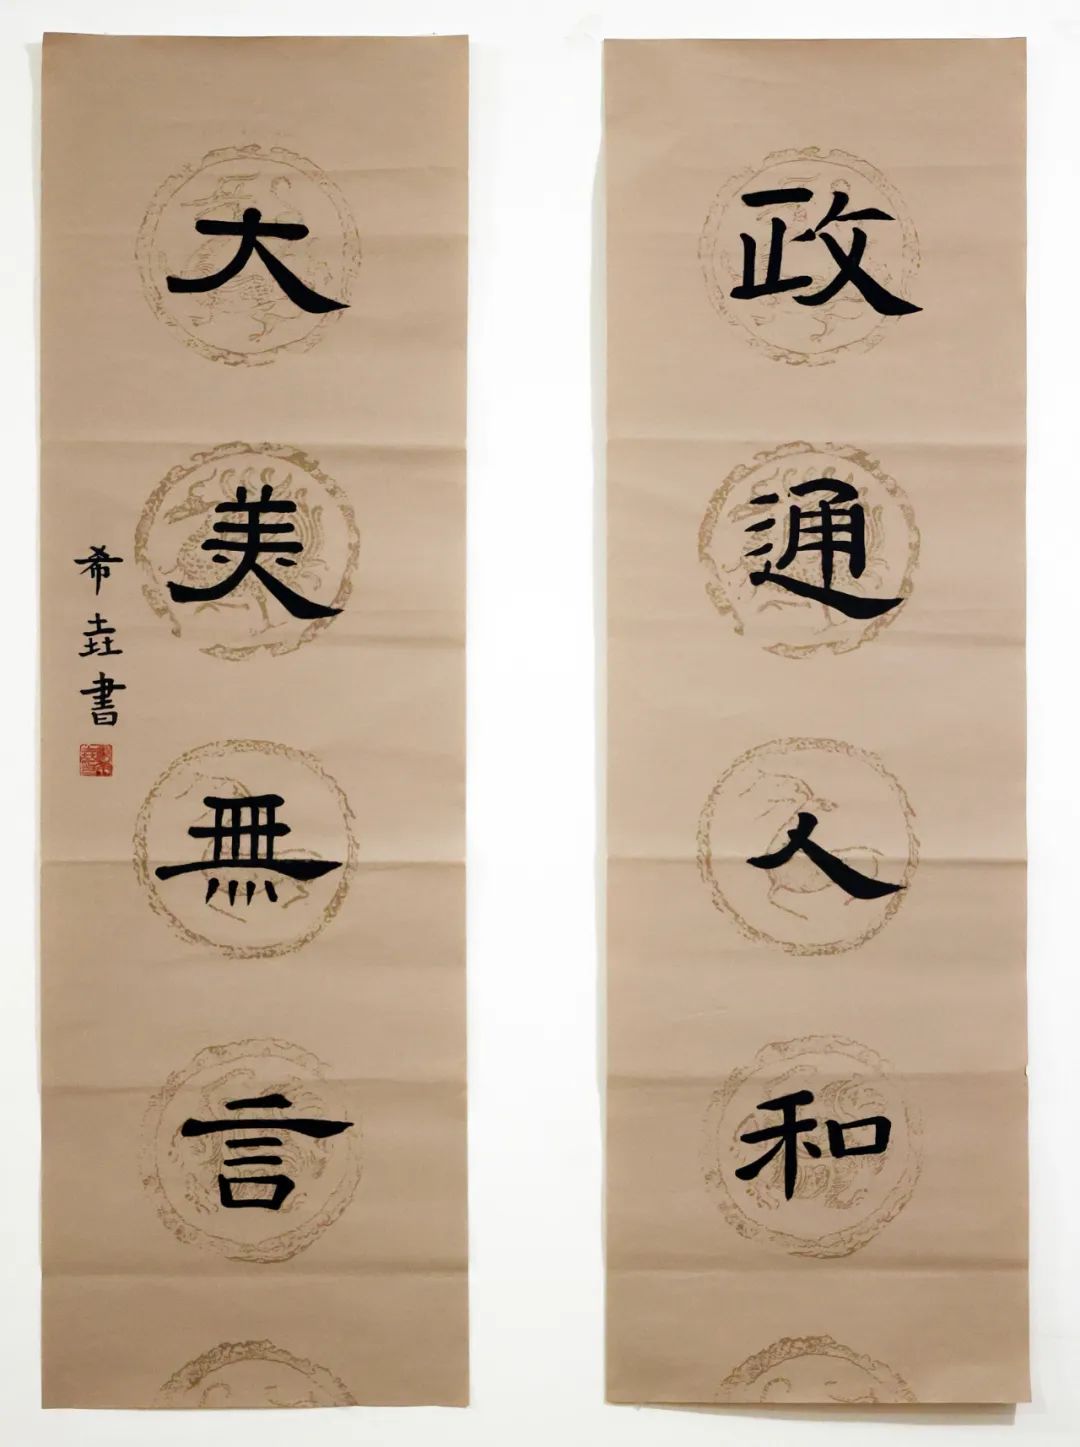 政通人和
大美無言
希垚書